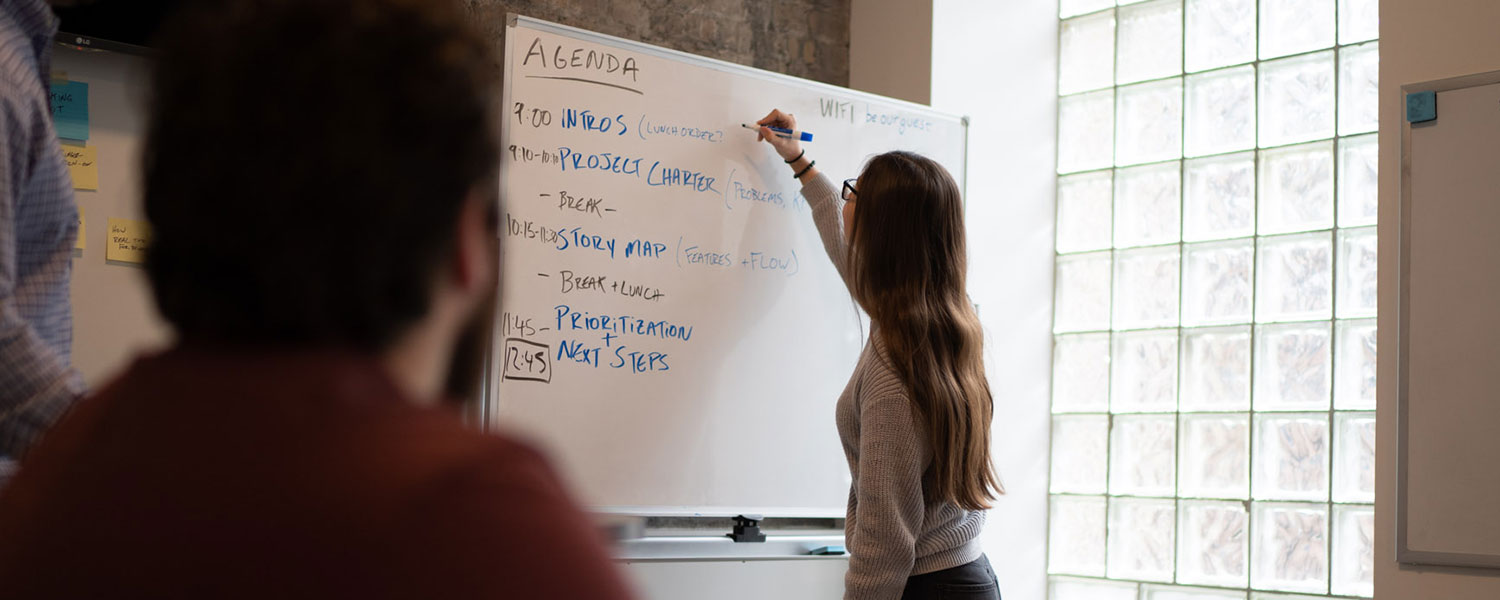 AGENDA
WIFI be our guest
9:00 INTROS (LUNCH ORDER?
9:10-10:10 PROJECT CHARTER (PROBLEMS,
- BREAK -
10:15-11:30 STORY MAP (FEATURES + FLOW)
- BREAK + LUNCH
11:45- PRIORITIZATION
+
12:45 NEXT STEPS
LG
HOW